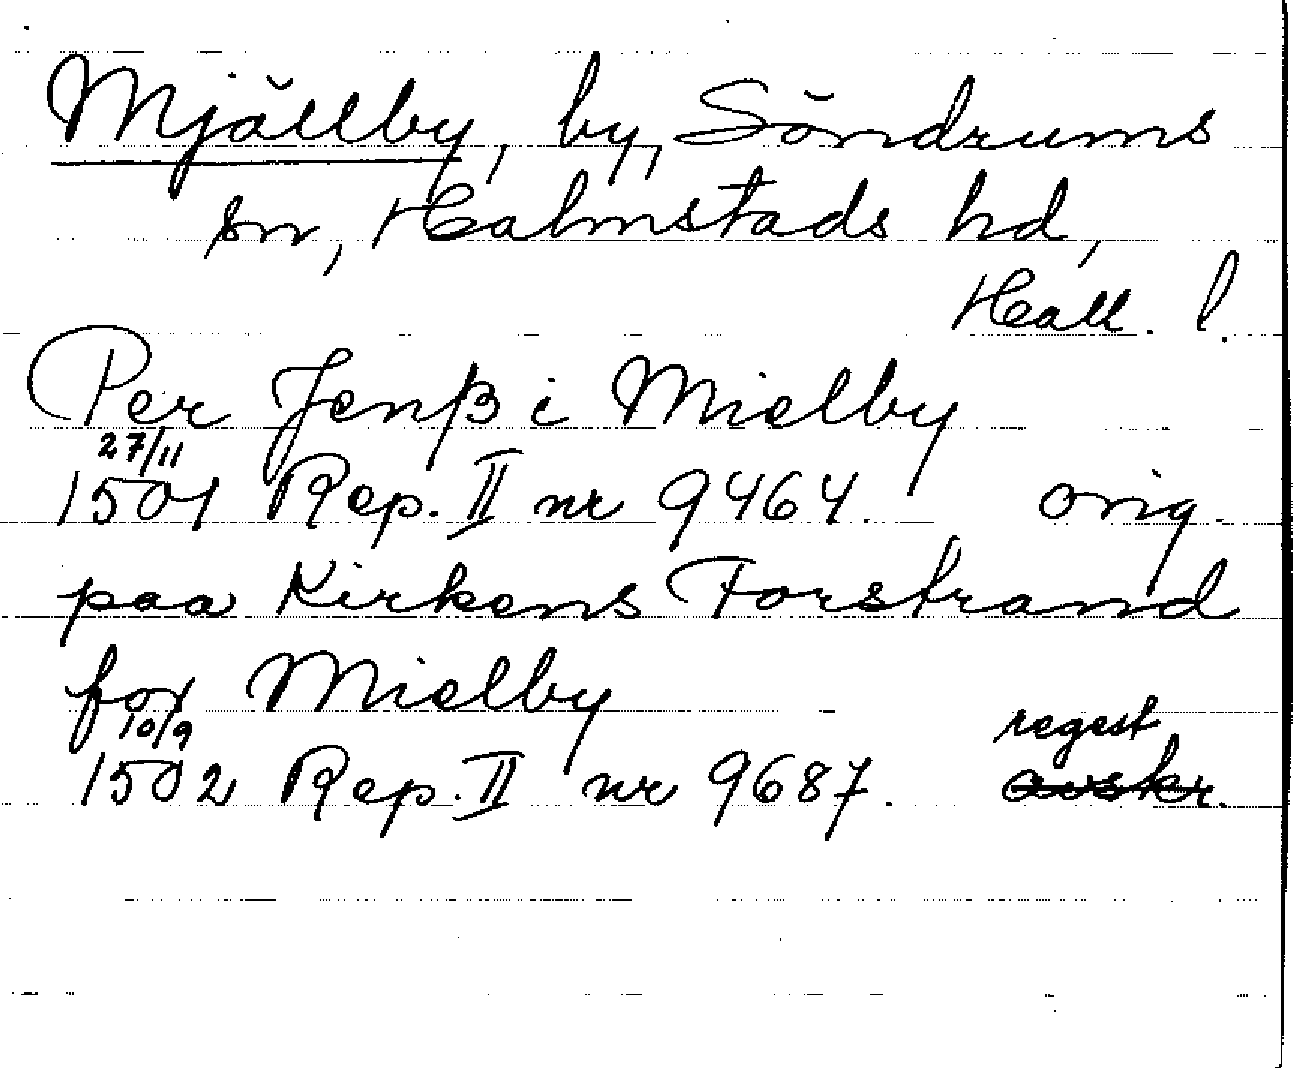 Mjällby, by, Söndrums
sn, Halmstads hd,
Hall. l.
Per Jenβ i Mielby
27/11
1501 Rep. II nr 9464. orig.
paa Kirkens Forstrand
for Mielby
10/9 regest
1502 Rep. II nr 9687. avskr.